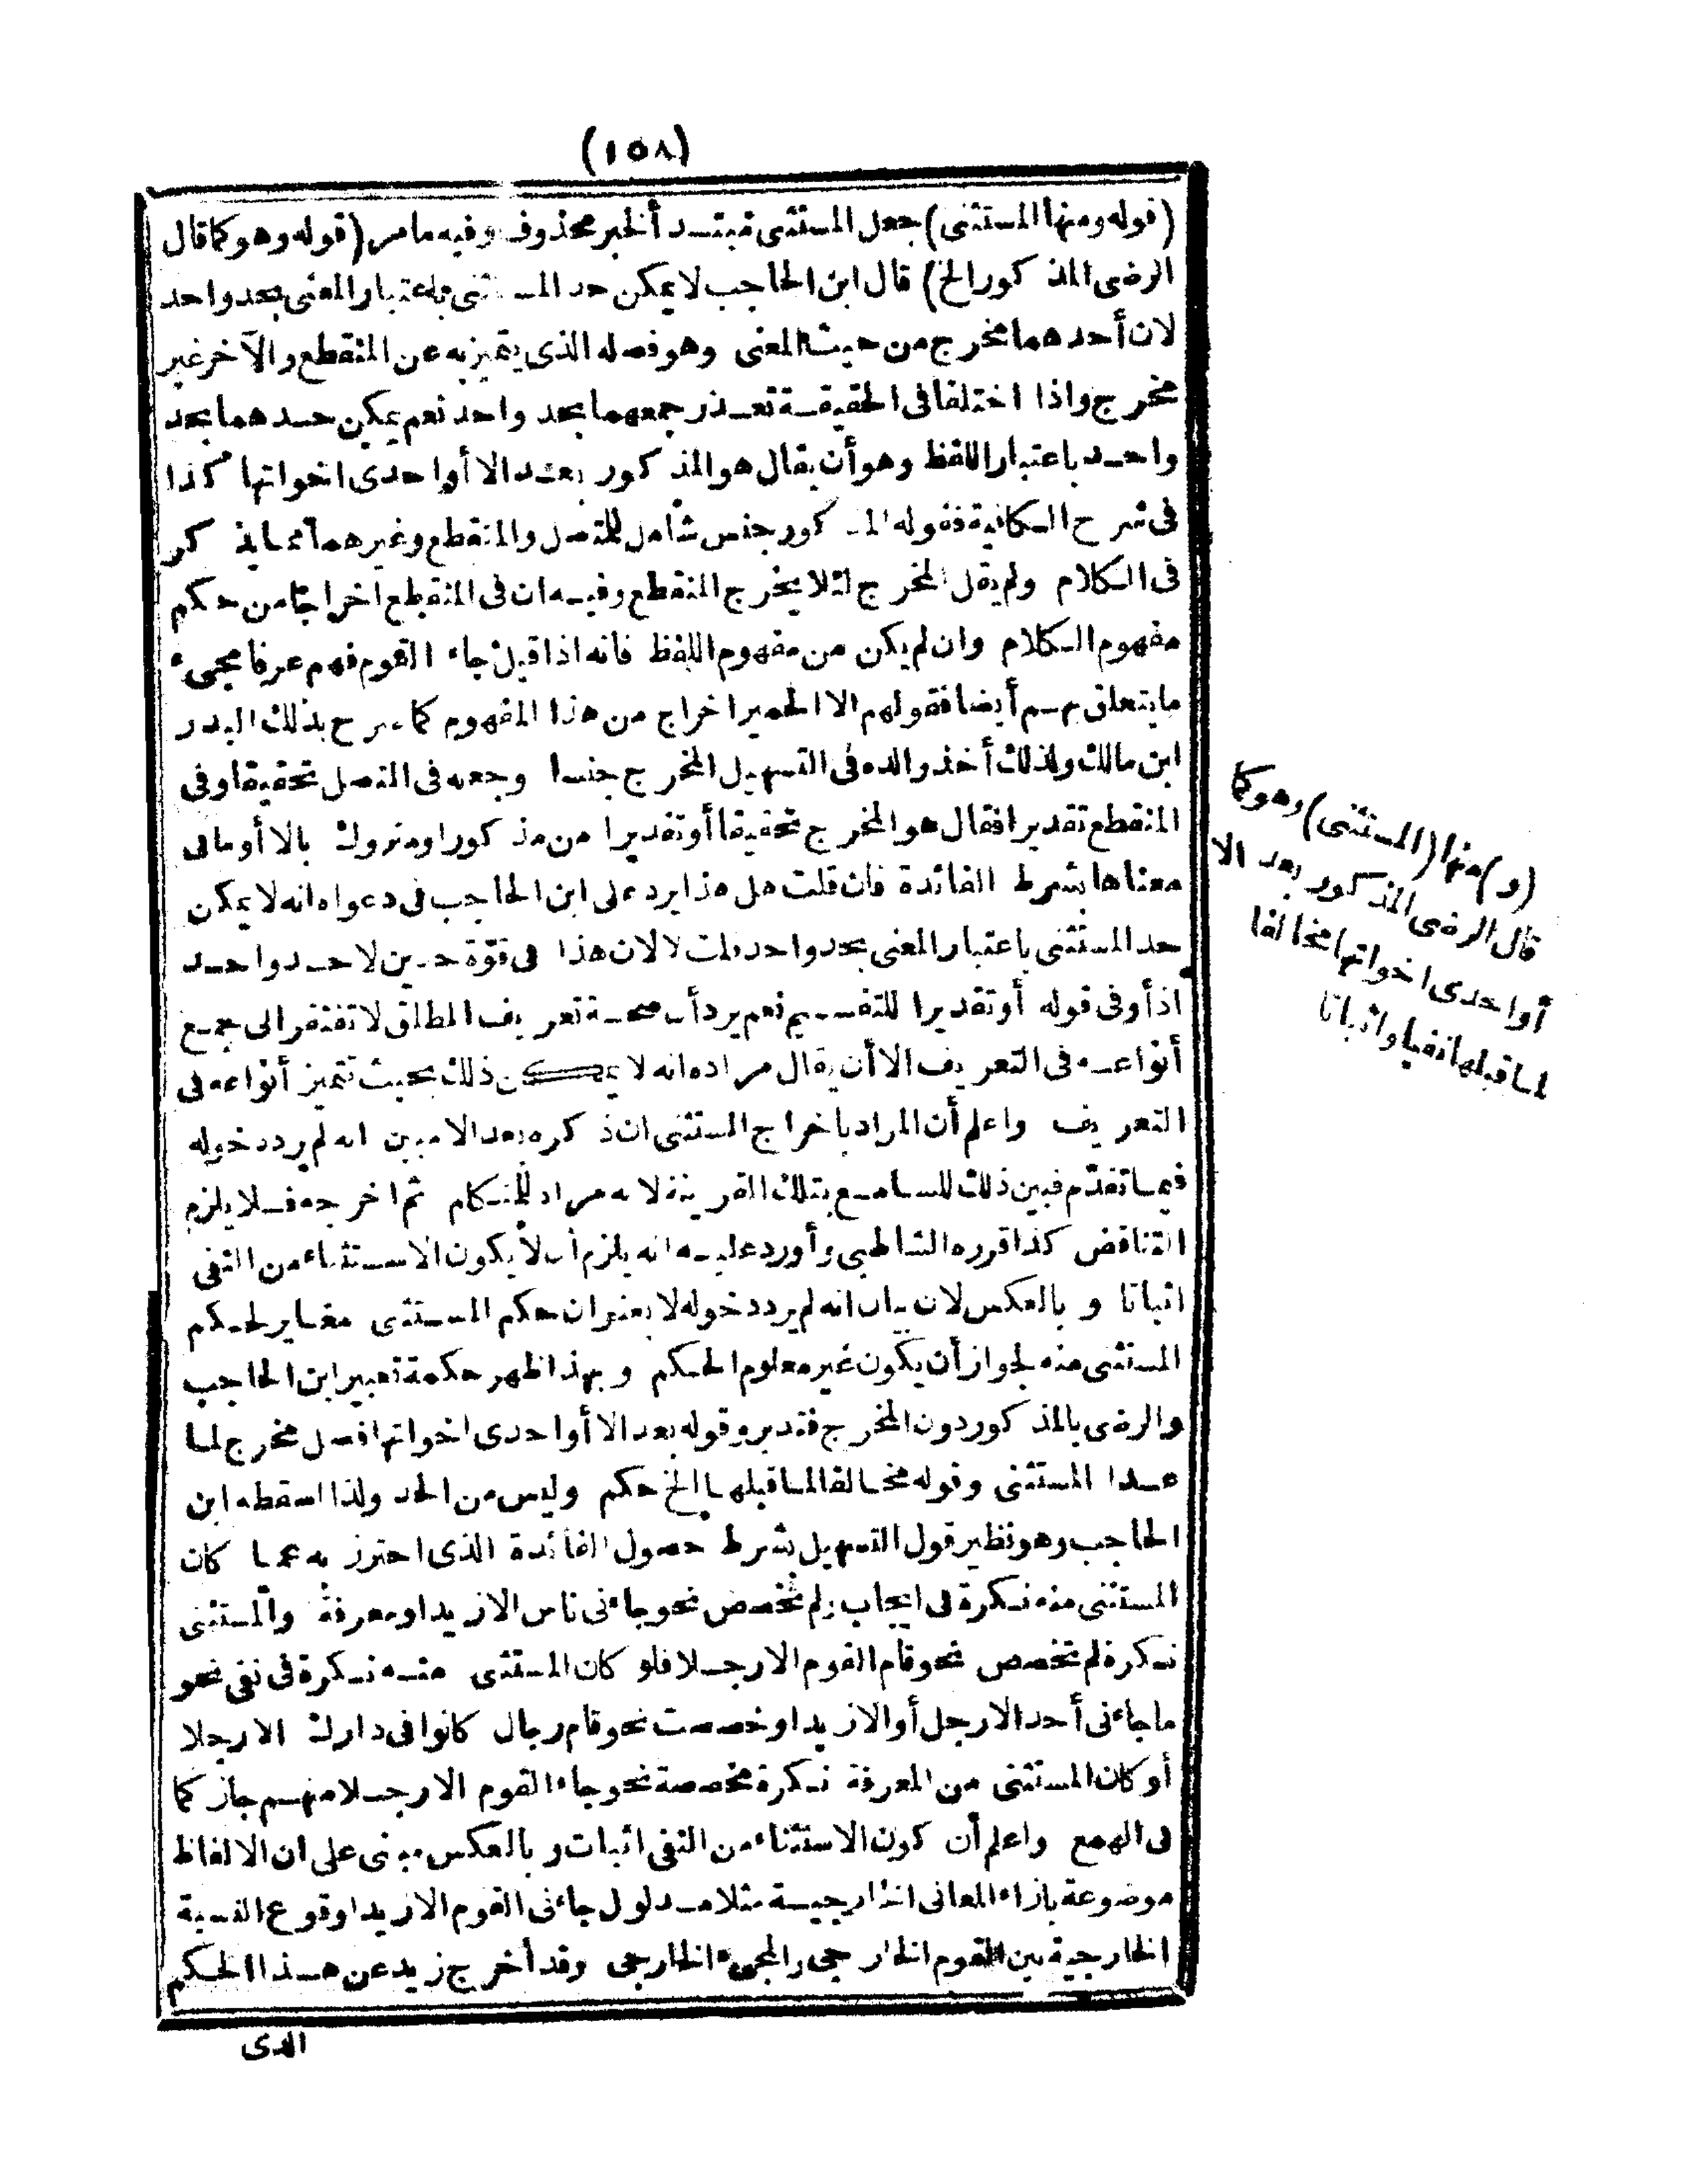 (١٥٨)
(قوله ومنها المستثنى) جعل المستثنى مبتدأ لخبر محذوف وفيه ما مر (قوله وهو كما قال
الرضى المذكور الخ) قال ابن الحاجب لا يمكن حد المستثنى باعتبار المعنى بحد واحد
لان أحدهما مخرج من حيث المعنى وهو فصله الذى يتميز به عن المنقطع والآخر غير
مخرج واذا اختلفا فى الحقيقة تعذر جمعهما بحد واحد نعم يمكن حدهما بحد
واحد باعتبار اللفظ وهو أن يقال هو المذكور بعد الا أو احدى اخواتها كذا
فى شرح الكافية فقوله المذكور جنس شامل للمتصل والمنقطع وغيرهما مما يذكر
فى الكلام ولم يقل المخرج لئلا يخرج المنقطع وفيه ان فى المنقطع اخراجا من حكم
مفهوم الكلام وان لم يكن من مفهوم اللفظ فانه اذا قيل جاء القوم فهم عرفا مجىء
ما يتعلق بهم أيضا فقولهم الا الحمير اخراج من هذا المفهوم كما صرح بذلك البدر
ابن مالك ولذلك أخذ والده فى التسهيل المخرج جنسا وجعله فى المتصل تحقيقا وفى
المنقطع تقديرا فقال هو المخرج تحقيقا أو تقديرا من مذكور او متروك بالا أو ما فى
معناها بشرط الفائدة فان قلت هل هذا يرد على ابن الحاجب فى دعواه انه لا يمكن
حد المستثنى باعتبار المعنى بحد واحد قلت لا لان هذا فى قوّة حدين لا حد واحد
اذ أو فى قوله أو تقديرا للتقسيم نعم يرد أن صحة تعريف المطلق لا تفتقر الى جمع
أنواعه فى التعريف الا أن يقال مراده انه لا يمكن ذلك بحيث تتميز أنواعه فى
التعريف واعلم أن المراد باخراج المستثنى ان ذكره بعد الا مبين انه لم يرد دخوله
فيما تقدّم فبين ذلك للسامع بتلك القرينة لا انه مراد للمتكلم ثم اخرجه فلا يلزم
التناقض كذا قرره الشاطبى وأورد عليه انه يلزم أن لا يكون الاستثناء من النفى
اثباتا و بالعكس لان بيان انه لم يرد دخوله لا يعنى ان حكم المستثنى مغاير لحكم
المستثنى منه لجواز أن يكون غير معلوم الحكم و بهذا ظهر حكمة تعبير ابن الحاجب
والرضى بالمذكور دون المخرج فتدبر وقوله بعد الا أو احدى اخواتها فصل مخرج لما
عدا المستثنى وقوله مخالفا لما قبلها الخ حكم وليس من الحد ولذا اسقطه ابن
الحاجب وهو نظير قول التسهيل بشرط حصول الفائدة الذى احترز به عما كان
المستثنى منه نكرة فى ايجاب ولم تخصص نحو جاءنى ناس الا زيدا او معرفة والمستثنى
نكرة لم تخصص نحو قام القوم الا رجلا فلو كان المستثنى منه نكرة فى نفى نحو
ما جاءنى أحد الا رجل أو الا زيد او خصصت نحو قام رجال كانوا فى دارك الا رجلا
أو كان المستثنى من المعرفة نكرة مخصصة نحو جاء القوم الا رجلا منهم جاز كما
فى الهمع واعلم أن كون الاستثناء من النفى اثبات و بالعكس مبنى على ان الالفاظ
موضوعة بازاء المعانى الخارجية مثلا مدلول جاءنى القوم الا زيدا وقوع النسبة
الخارجية بين القوم الخارجى والمجىء الخارجى وقد أخرج زيد عن هذا الحكم
الذى
(و) منها (المستثنى) وهو كما
قال الرضى المذكور بعد الا
أو احدى اخواتها مخالفا
لما قبلها نفيا واثباتا